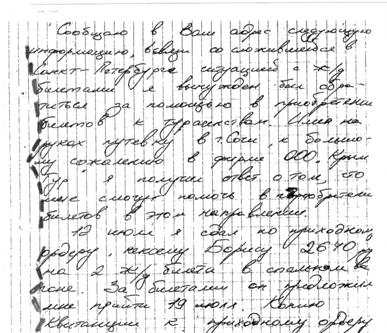 Сообщаю в Ваш адрес следующую
информацию, в связи со сложившейся в
Санкт-Петербурге ситуацией с ж/д
билетами я вынужден был обра-
титься за помощью в приобретении
билетов к турагенствам. Имея на
руках путевку в г. Сочи, к большо-
му сожалению в фирме ООО. Крым
Тур я получил ответ о том, что
мне смогут помочь в приобретени
билетов в этом направлении.
12 июля я сдал по приходному
ордеру, некоему Борису 2640 р
на 2 ж/д билета в спальном ва
гоне. За билетами он предложил
мне прийти 19 июля. Копию
квитанции к приходному ордеру